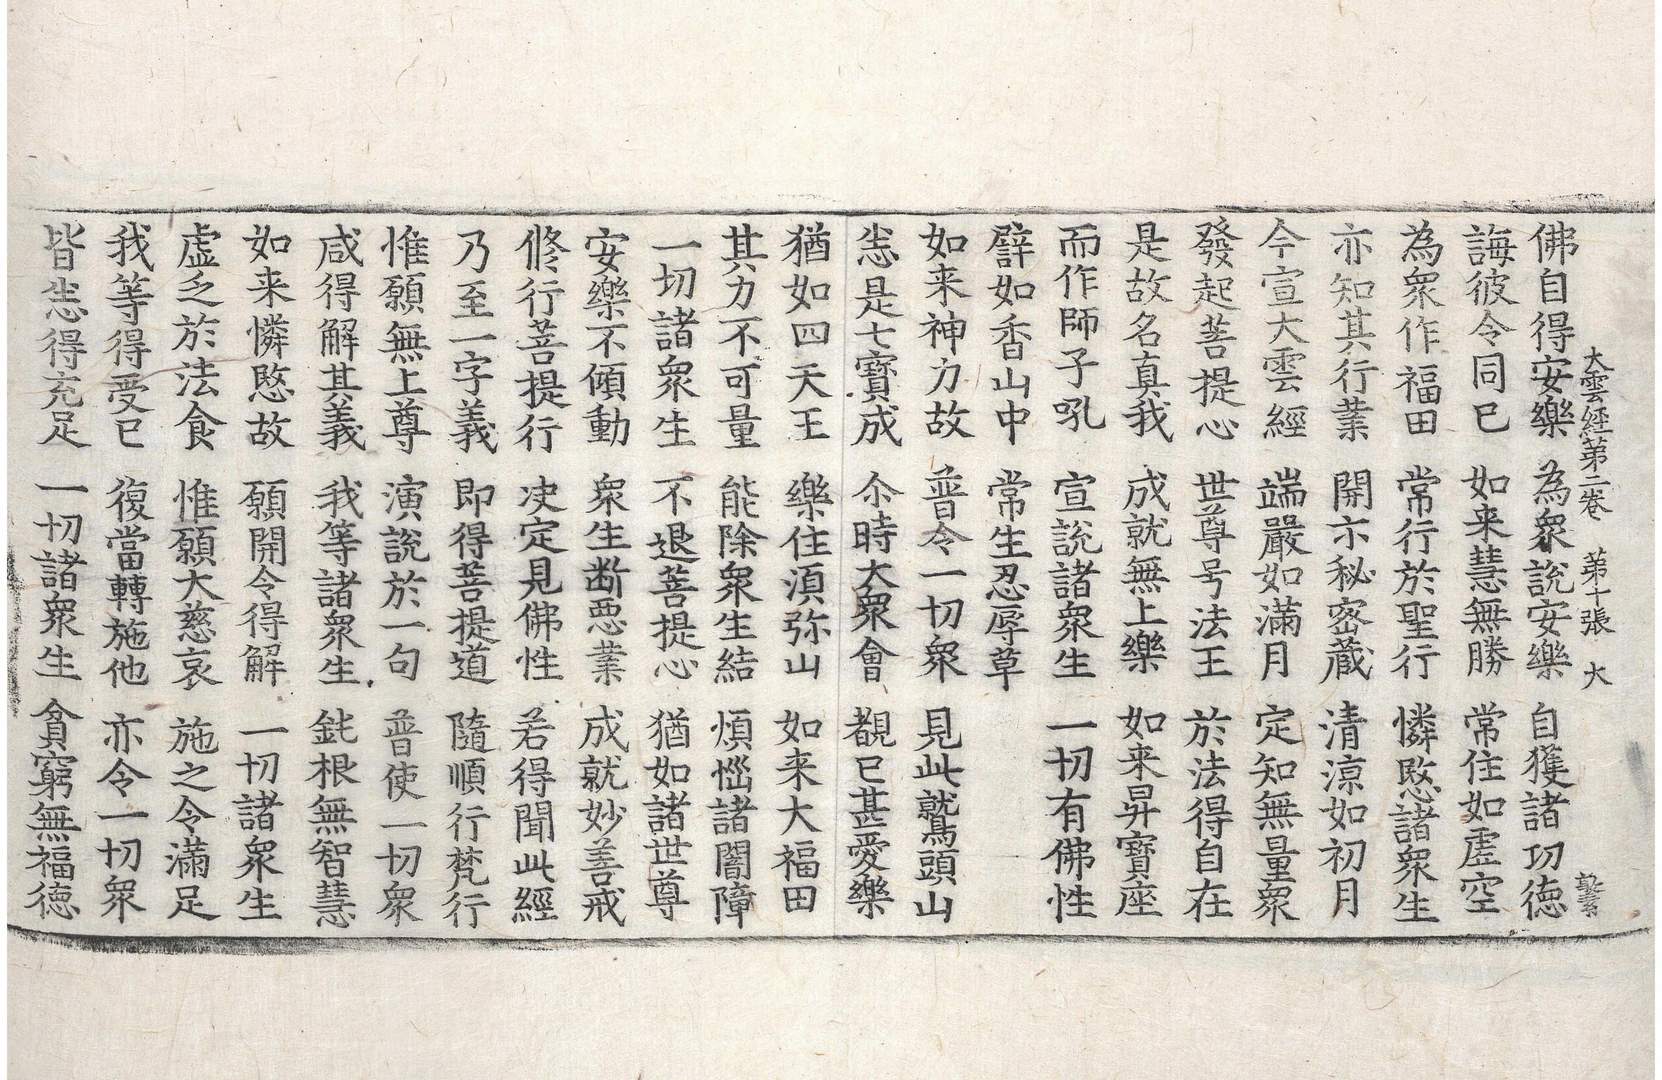 大雲經第二卷 第十張 大
佛自得安樂 為衆說安樂 自獲諸功德
誨彼令同已 如来慧無勝 常住如虛空
為衆作福田 常行於聖行 憐愍諸衆生
亦知其行業 開示秘密蔵 清涼如初月
今宣大雲經 端嚴如滿月 定知無量衆
發起菩提心 世尊号法王 於法得自在
是故名真我 成就無上樂 如来昇寶座
而作師子吼 宣說諸衆生 一切有佛性
譬如香山中 常生忍辱草
如来神力故 普令一切衆 見此鷲頭山
悉是七寶成 尒時大衆會 覩已甚愛樂
猶如四天王 樂住湏弥山 如来大福田
其力不可量 能除衆生結 煩惱諸闇障
一切諸衆生 不退菩提心 猶如諸世尊
安樂不傾動 衆生断惡業 成就妙善戒
修行菩提行 决定見佛性 若得聞此經
乃至一字義 即得菩提道 隨順行梵行
惟願無上尊 演說於一句 普使一切衆
咸得解其義 我等諸衆生 鈍根無智慧
如来憐愍故 願開令得解 一切諸衆生
虛乏於法食 惟願大慈哀 施之令滿足
我等得受已 復當轉施他 亦令一切衆
皆悉得充足 一切諸衆生 貪窮無福德